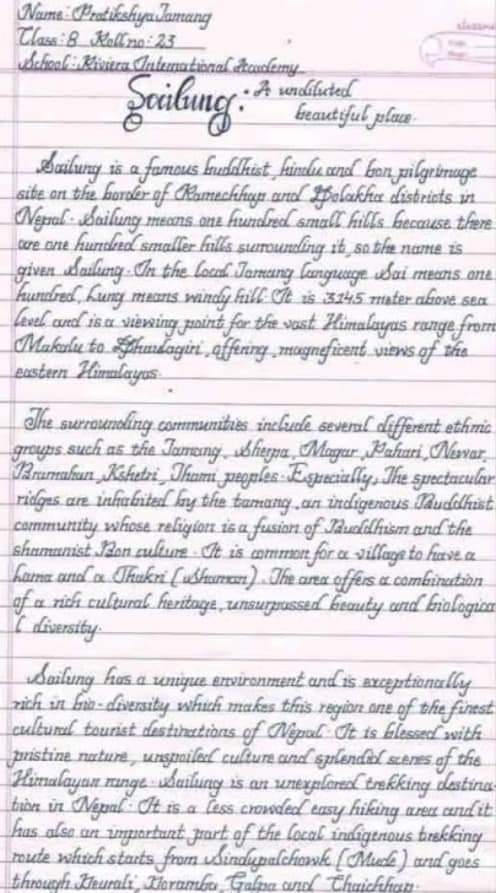 Name: Pratikshya Tamang
Class: 8 Roll no: 23
School: Riviera International Academy
Sailung: A undiluted
beautiful place.
Sailung is a famous buddhist, hindu and bon pilgrimage
site on the border of Ramechhap and Dolakha districts in
Nepal. Sailung means one hundred small hills because there
are one hundred smaller hills surrounding it, so the name is
given Sailung. In the local Tamang language Sai means one
hundred, Lung means windy hill. It is 3145 meter above sea
level and is a viewing point for the vast Himalayas range from
Makalu to Dhaulagiri, offering magneficent views of the
eastern Himalayas.
The surrounding communities include several different ethnic
groups such as the Tamang, Sherpa, Magar, Pahari, Newar,
Bramahan, Kshetri, Thami peoples. Especially, The spectacular
ridges are inhabited by the tamang, an indigenous Buddhist
community whose religion is a fusion of Buddhism and the
shamanist Bon culture. It is common for a village to have a
Lama and a Thakri (Shaman). The area offers a combination
of a rich cultural heritage, unsurpassed beauty and biologica
l diversity.
Sailung has a unique environment and is exceptionally
rich in bio-diversity which makes this region one of the finest
cultural tourist destinations of Nepal. It is blessed with
pristine nature, unspoiled culture and splendid scenes of the
Himalayan range. Sailung is an unexplored trekking destina-
tion in Nepal. It is a less crowded easy hiking area and it
has also an important part of the local indigenous trekking
route which starts from Sindupalchowk (Mude) and goes
through Deurali, Doramba, Galpa and Khaichhap.